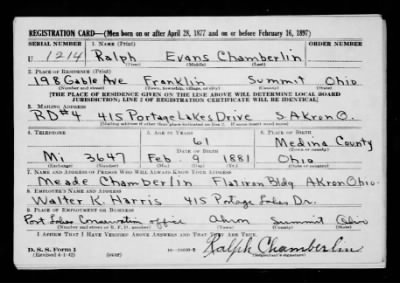 REGISTRATION CARD—(Men born on or after April 28, 1877 and on or before February 16, 1897)
SERIAL NUMBER 1. NAME (Print) ORDER NUMBER
U 1214 Ralph Evans Chamberlin
(First) (Middle) (Last)
2. PLACE OF RESIDENCE (Print)
198 Gable Ave Franklin Summit Ohio
(Number and street) (Town, township, village, or city) (County) (State)
[THE PLACE OF RESIDENCE GIVEN ON THE LINE ABOVE WILL DETERMINE LOCAL BOARD
JURISDICTION; LINE 2 OF REGISTRATION CERTIFICATE WILL BE IDENTICAL]
3. MAILING ADDRESS
RD#4 415 Portage Lakes Drive S Akron O.
[Mailing address if other than place indicated on line 2. If same insert word same]
4. TELEPHONE 5. AGE IN YEARS 6. PLACE OF BIRTH
61 Medina County
DATE OF BIRTH
Mi 3647 Feb. 9 1881 Ohio
(Exchange) (Number) (Mo.) (Day) (Yr.) (State or country)
7. NAME AND ADDRESS OF PERSON WHO WILL ALWAYS KNOW YOUR ADDRESS
Meade Chamberlin Flatiron Bldg Akron Ohio
8. EMPLOYER'S NAME AND ADDRESS
Walter K. Harris 415 Portage Lakes Dr.
9. PLACE OF EMPLOYMENT OR BUSINESS
Port Lakes Conservation office Akron Summit Ohio
(Number and street or R. F. D. number) (Town) (County) (State)
I AFFIRM THAT I HAVE VERIFIED ABOVE ANSWERS AND THAT THEY ARE TRUE.
D. S. S. Form 1
(Revised 4-1-42) (over)
Ralph Chamberlin
(Registrant's signature)